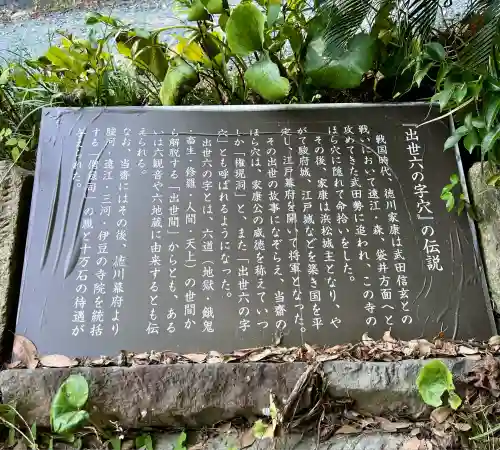 『出世六の字穴』の伝説
戦国時代、徳川家康は武田信玄との
戦いにおいて遠江・森、袋井方面へと
攻めてきた武田勢に追われ、この寺の
ほら穴に隠れて命拾いをした。
その後、家康は浜松城主となり、や
がて駿府城、江戸城などを築き国を平
定し、江戸幕府を開いて将軍となった。
この出世の故事になぞらえ、当齋の
ほら穴は、家康公の威徳を称えていつ
しか「権現洞」と、また「出世六の字
穴」とも呼ばれるようになった。
出世六の字とは、六道（地獄・餓鬼
・畜生・修羅・人間・天上）の世間か
ら解脱する「出世間」からとも、ある
いは六観音や六地蔵に由来するとも伝
えられる。
なお、当齋にはその後、徳川幕府より
駿河・遠江・三河・伊豆の寺院を統括
する「僧録司」の職と十万石の待遇が
与えられた。